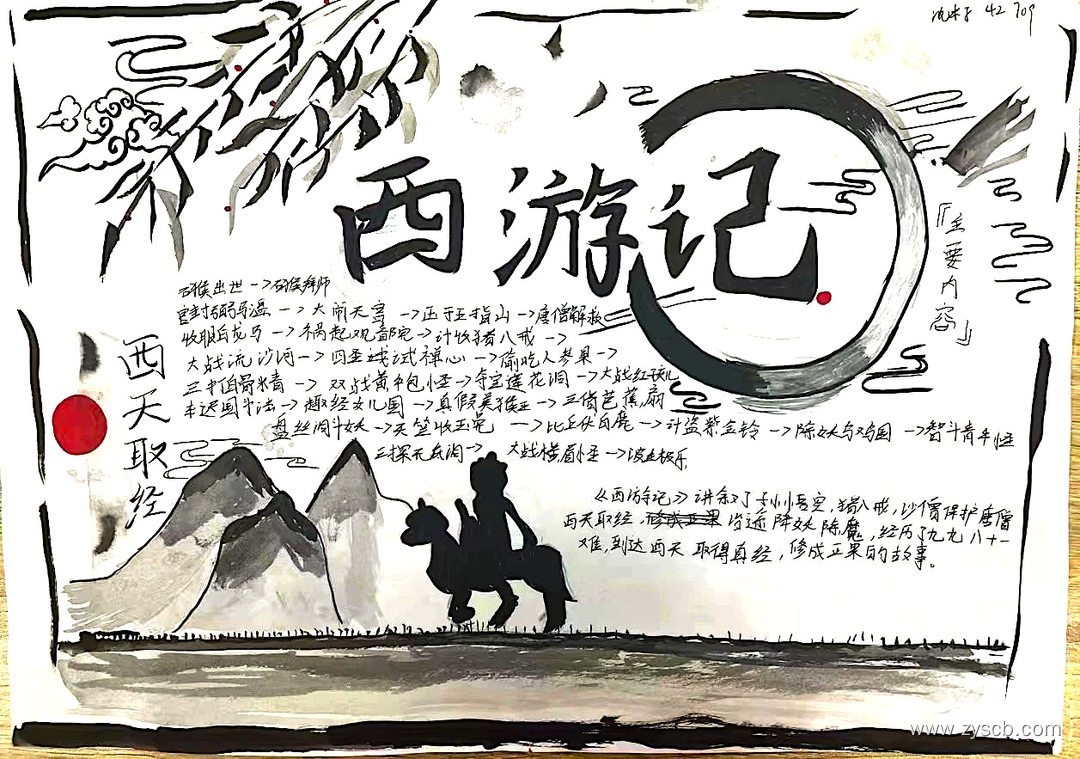 42 709
西游记
『主要内容』
西天取经
石猴出世->石猴拜师
官封弼马温->大闹天宫->压于五指山->唐僧解救
收服白龙马->祸起观音院->计收猪八戒->
大战流沙河->四圣试禅心->偷吃人参果->
三打白骨精->双战黄袍怪->夺宝莲花洞->大战红孩儿
车迟国斗法->趣经女儿国->真假美猴王->三借芭蕉扇
盘丝洞斗妖->天竺收玉兔->比丘伏白鹿->计盗紫金铃->除妖乌鸡国->智斗青牛怪
三探无底洞->大战横眉怪->波生极乐
《西游记》讲述了孙悟空,猪八戒,沙僧保护唐僧
西天取经,修成正果沿途降妖除魔,经历了九九八十一
难,到达西天取得真经,修成正果的故事。
www.zyscb.com